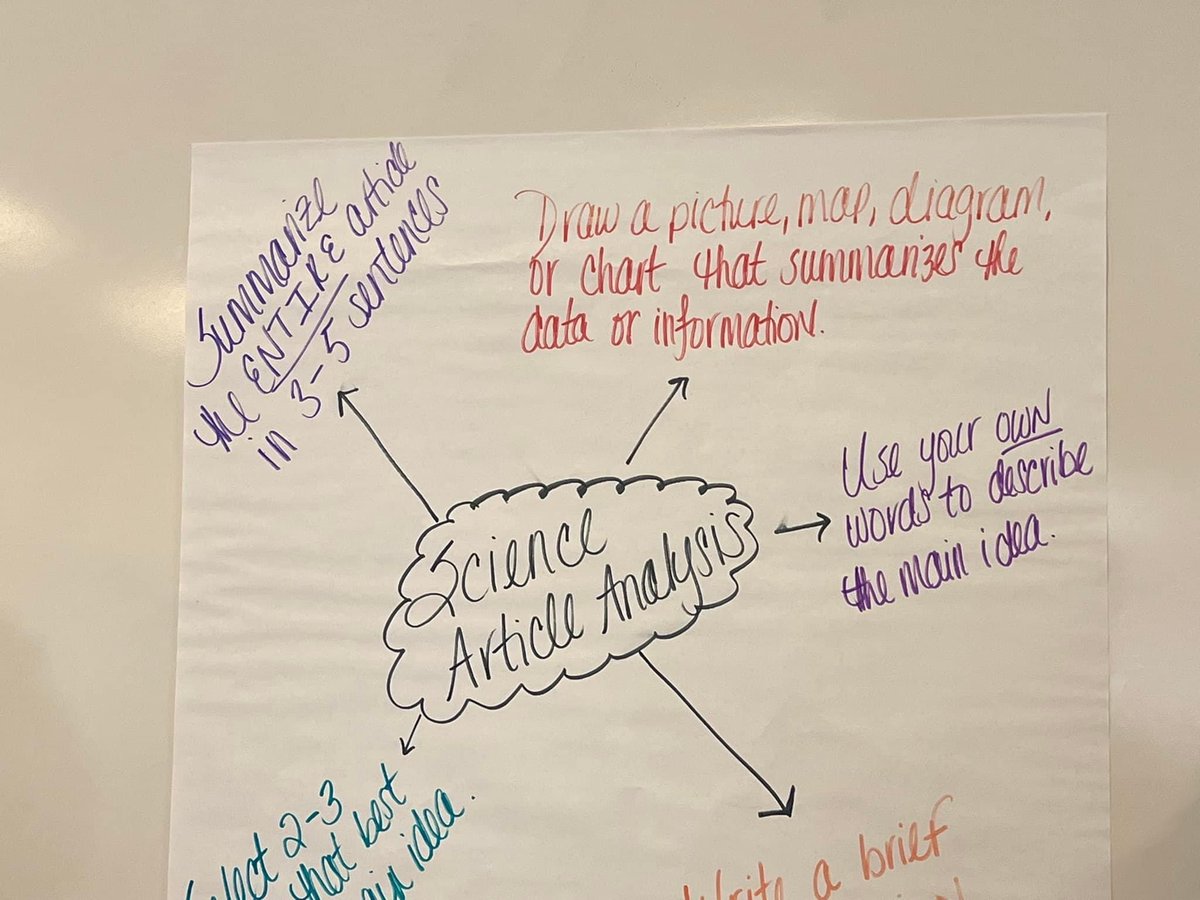 Summarize
the ENTIRE article
in 3-5 sentences
Draw a picture, map, diagram,
or chart that summarizes the
data or information.
Use your own
words to describe
the main idea.
Science
Article Analysis
2-3
that best
idea.
Write a brief